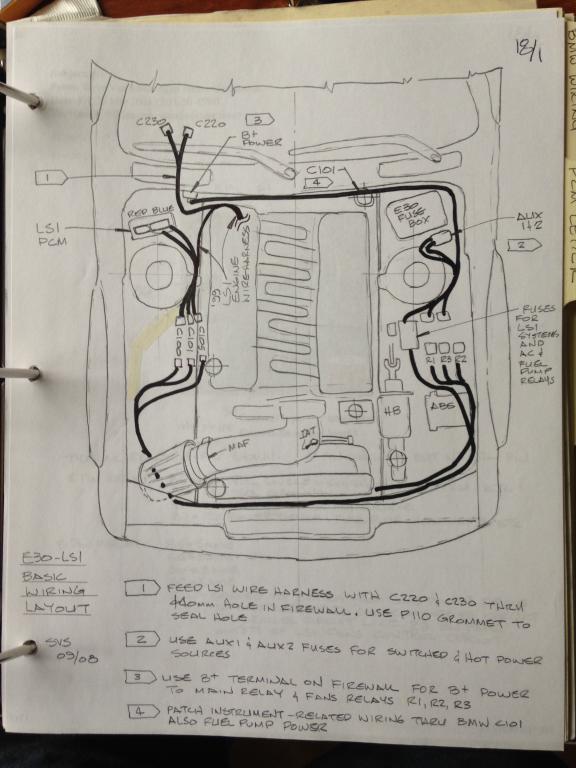 18/1
BMW WIRING
C230
C220
3
B+
POWER
1
C101
4
RED BLUE
LS1
PCM
E30
FUSE
BOX
AUX
1 & 2
2
'99
LS1
ENGINE
WIRE HARNESS
FUSES
FOR
LS1
SYSTEMS
AND
AC &
FUEL
PUMP
RELAYS
C100
C101
C105
R1 R3 R2
HB
ABS
MAF
IAT
E30-LS1
BASIC
WIRING
LAYOUT
SVS
09/08
1 FEED LS1 WIRE HARNESS WITH C220 & C230 THRU
44.0mm HOLE IN FIREWALL. USE P110 GROMMET TO
SEAL HOLE
2 USE AUX1 & AUX2 FUSES FOR SWITCHED & HOT POWER
SOURCES
3 USE B+ TERMINAL ON FIREWALL FOR B+ POWER
TO MAIN RELAY & FANS RELAYS R1, R2, R3
4 PATCH INSTRUMENT-RELATED WIRING THRU BMW C101
ALSO FUEL PUMP POWER